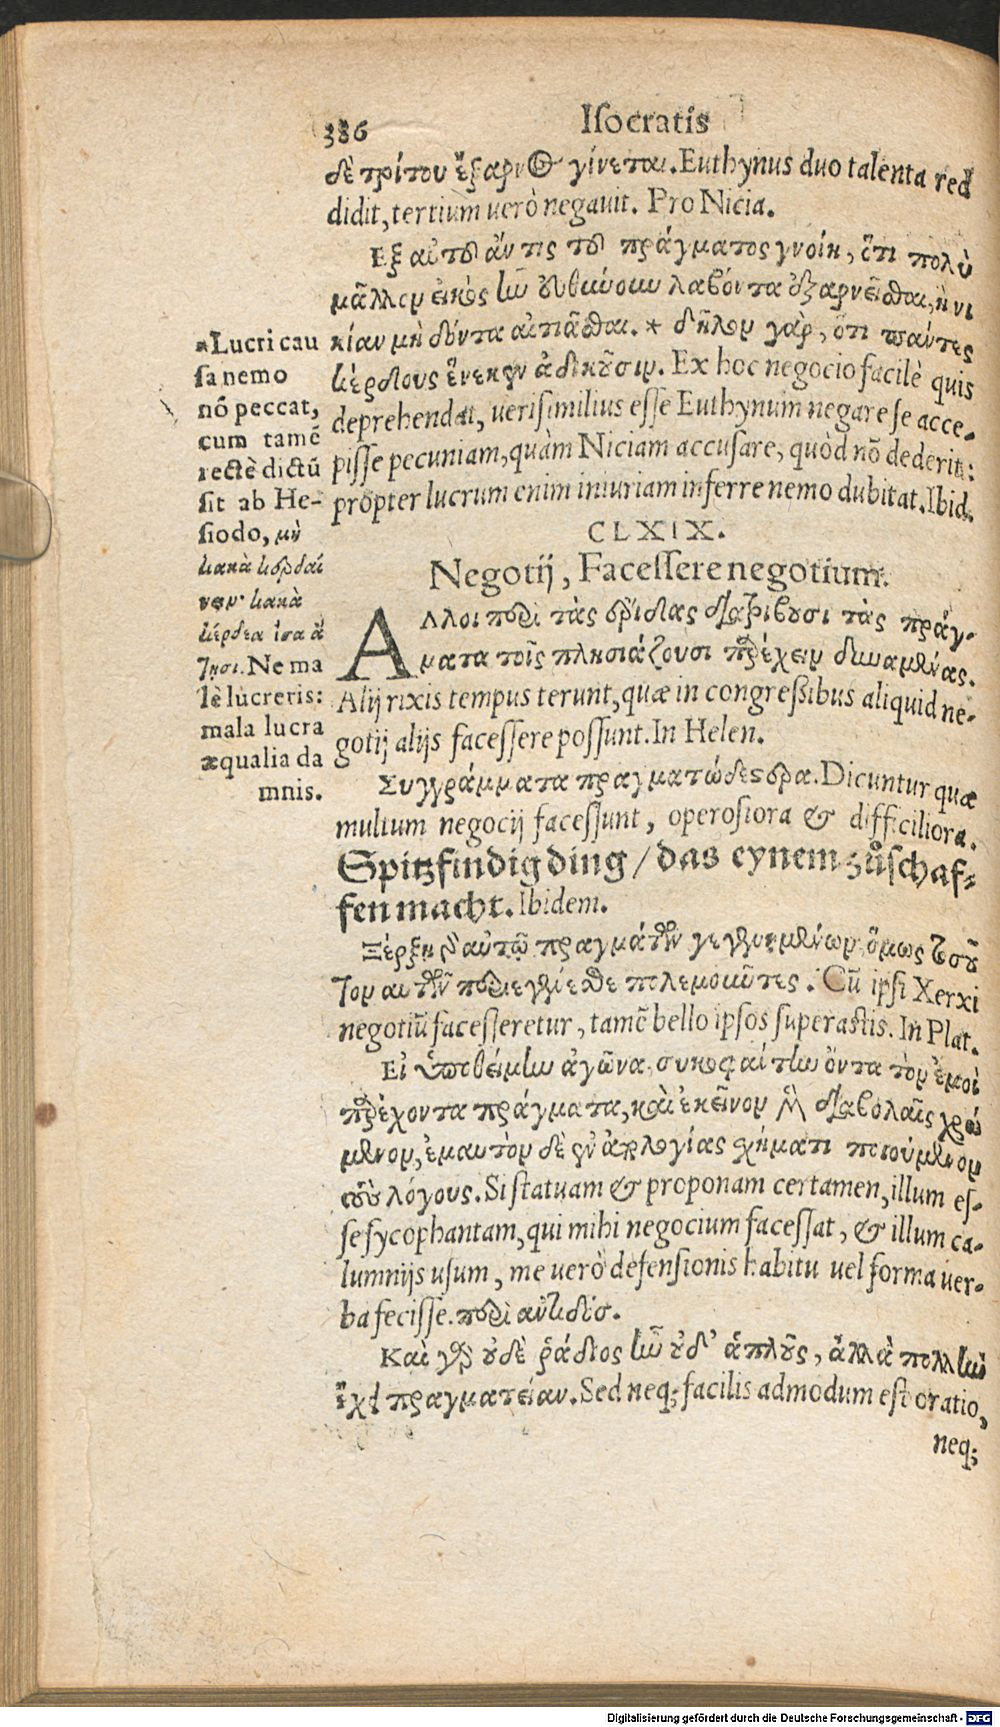 386 Iſocratis
δὲ τρίτου ἔξαρνος γίνεται. Euthynus duo talenta red
didit, tertium uerò negauit. Pro Nicia.
Εξ αὐτοῦ ἄν τις τοῦ πράγματος γνοίη, ὅτι πολὺ
μᾶλλον εἰκὸς ἦν Εὐθύνουν λαβόντα ἐξαρνεῖσθαι, ἢ νι
κίαν μὴ δόντα αἰτιᾶσθαι. * δῆλον γὰρ, ὅτι πάντες
κέρδους ἕνεκεν ἀδικοῦσιν. Ex hoc negocio facilè quis
deprehendat, ueriſimilius eſſe Euthynum negare ſe acce-
piſſe pecuniam, quàm Niciam accuſare, quòd nõ dederit:
propter lucrum enim iniuriam inferre nemo dubitat. Ibid.
*Lucri cau
ſa nemo
nõ peccat,
cum tamẽ
rectè dictũ
ſit ab He-
ſiodo, μὴ
κακὰ κερδαί
νειν· κακὰ
κέρδεα ἶσα ἄ
τησι. Ne ma
lè lucreris:
mala lucra
æqualia da
mnis.
CLXIX.
Negotij, Faceſſere negotium.
ΑΛλοι περὶ τὰς ἔριδας διατρίβουσι τὰς πράγ-
ματα τοῖς πλησιάζουσι παρέχειν δυναμένας.
Alij rixis tempus terunt, quæ in congreſsibus aliquid ne-
gotij alijs faceſſere poſſunt. In Helen.
Συγγράμματα πραγματωδέστερα. Dicuntur quæ
multum negocij faceſſunt, operoſiora & difficiliora.
Spitzfindig ding / das eynem zůſchaf-
fen macht. Ibidem.
Ξέρξῃ δι' αὐτῶν πραγμάτων γεγενημένων, ὅμως τοσοῦ
τον αὐτῶν περιεγένεσθε πολεμοῦντες. Cũ ipſi Xerxi
negotiũ faceſſeretur, tamẽ bello ipſos ſuperaſtis. In Plat.
Εἰ ὑποθείμην ἀγῶνα, συκοφάντην ὄντα τὸν ἐμοὶ
παρέχοντα πράγματα, καὶ ἐκεῖνον μὲν διαβολαῖς χρώ
μενον, ἐμαυτὸν δὲ ἐν ἀπολογίας σχήματι ποιούμενον
τοὺς λόγους. Si ſtatuam & proponam certamen, illum eſ-
ſe ſycophantam, qui mihi negocium faceſſat, & illum ca-
lumnijs uſum, me uerò defenſionis habitu uel forma uer-
ba feciſſe. περὶ ἀντιδόσ.
Καὶ γὰρ οὐδὲ ῥᾴδιος ἦν οὐδ' ἁπλοῦς, ἀλλὰ πολλὴν
ἔχων πραγματείαν. Sed neq; facilis admodum eſt oratio,
neq;
Digitalisierung gefördert durch die Deutsche Forschungsgemeinschaft - DFG